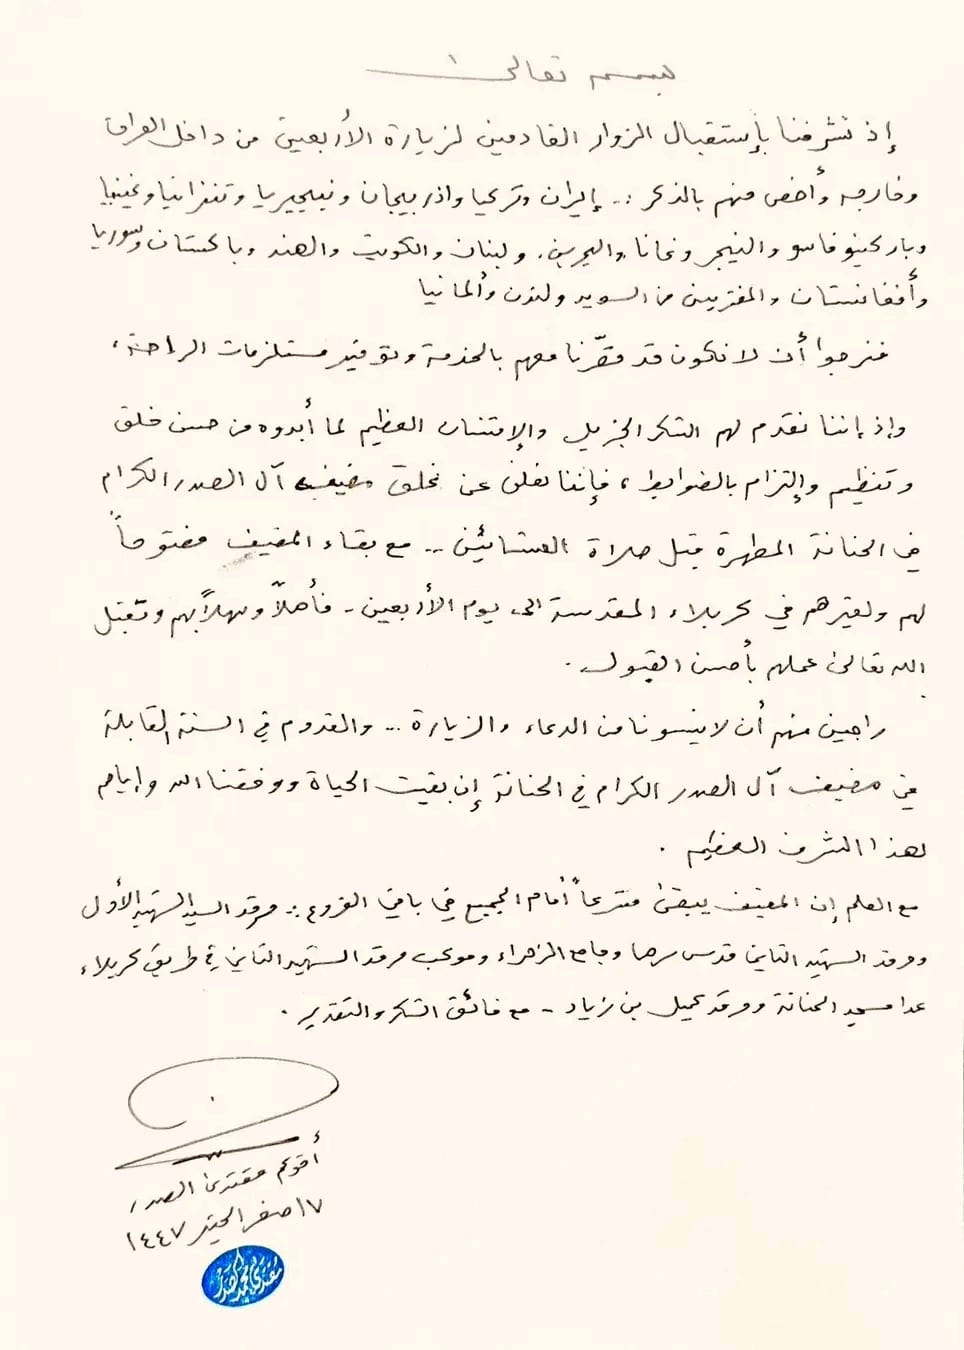 بسمه تعالى
إذ تشرفنا بإستقبال الزوار القادمين لزيارة الأربعين من داخل العراق
وخارجه وأخص منهم بالذكر :.. إيران وتركيا واذربيجان ونيجيريا وتنزانيا وغينيا
وباركينو فاسو والنيجر وغانا والبحرين. ولبنان والكويت والهند وباكستان وسوريا
وأفغانستان والمغتربين من السويد ولندن وألمانيا
فنرجوا أن لا نكون قد قصّرنا معهم بالخدمة وتوفير مستلزمات الراحة،
وإذ إننا نقدم لهم الشكر الجزيل والإمتنان العظيم لما أبدوه من حسن خلق
وتنظيم وإلتزام بالضوابط، فإننا نعلن عن غلق مضيف آل الصدر الكرام
في الحنانة المطهرة قبل صلاة العشائين .. مع بقاء المضيف مفتوحاً
لهم ولغيرهم في كربلاء المقدسة الى يوم الأربعين - فأهلاً وسهلاً بهم وتقبل
الله تعالى عملهم بأحسن القبول .
راجين منهم أن لا ينسونا من الدعاء والزيارة .. والقدوم في السنة القابلة
في مضيف آل الصدر الكرام في الحنانة إن بقيت الحياة ووفقنا الله وإياهم
لهذا الشرف العظيم .
مع العلم إن المضيف يبقى مشرعاً أمام الجميع في باقي الفروع :. مرقد السيد الشهيد الأول
ومرقد الشهيد الثاني قدس سرهما وجامع الزهراء وموكب مرقد الشهيد الثاني في طريق كربلاء
عدا مسجد الحنانة ومرقد كميل بن زياد - مع فائق الشكر والتقدير .
أقولكم مقتدى الصدر
١٧ صفر الخير ١٤٤٧
مقتدى محمد الصدر